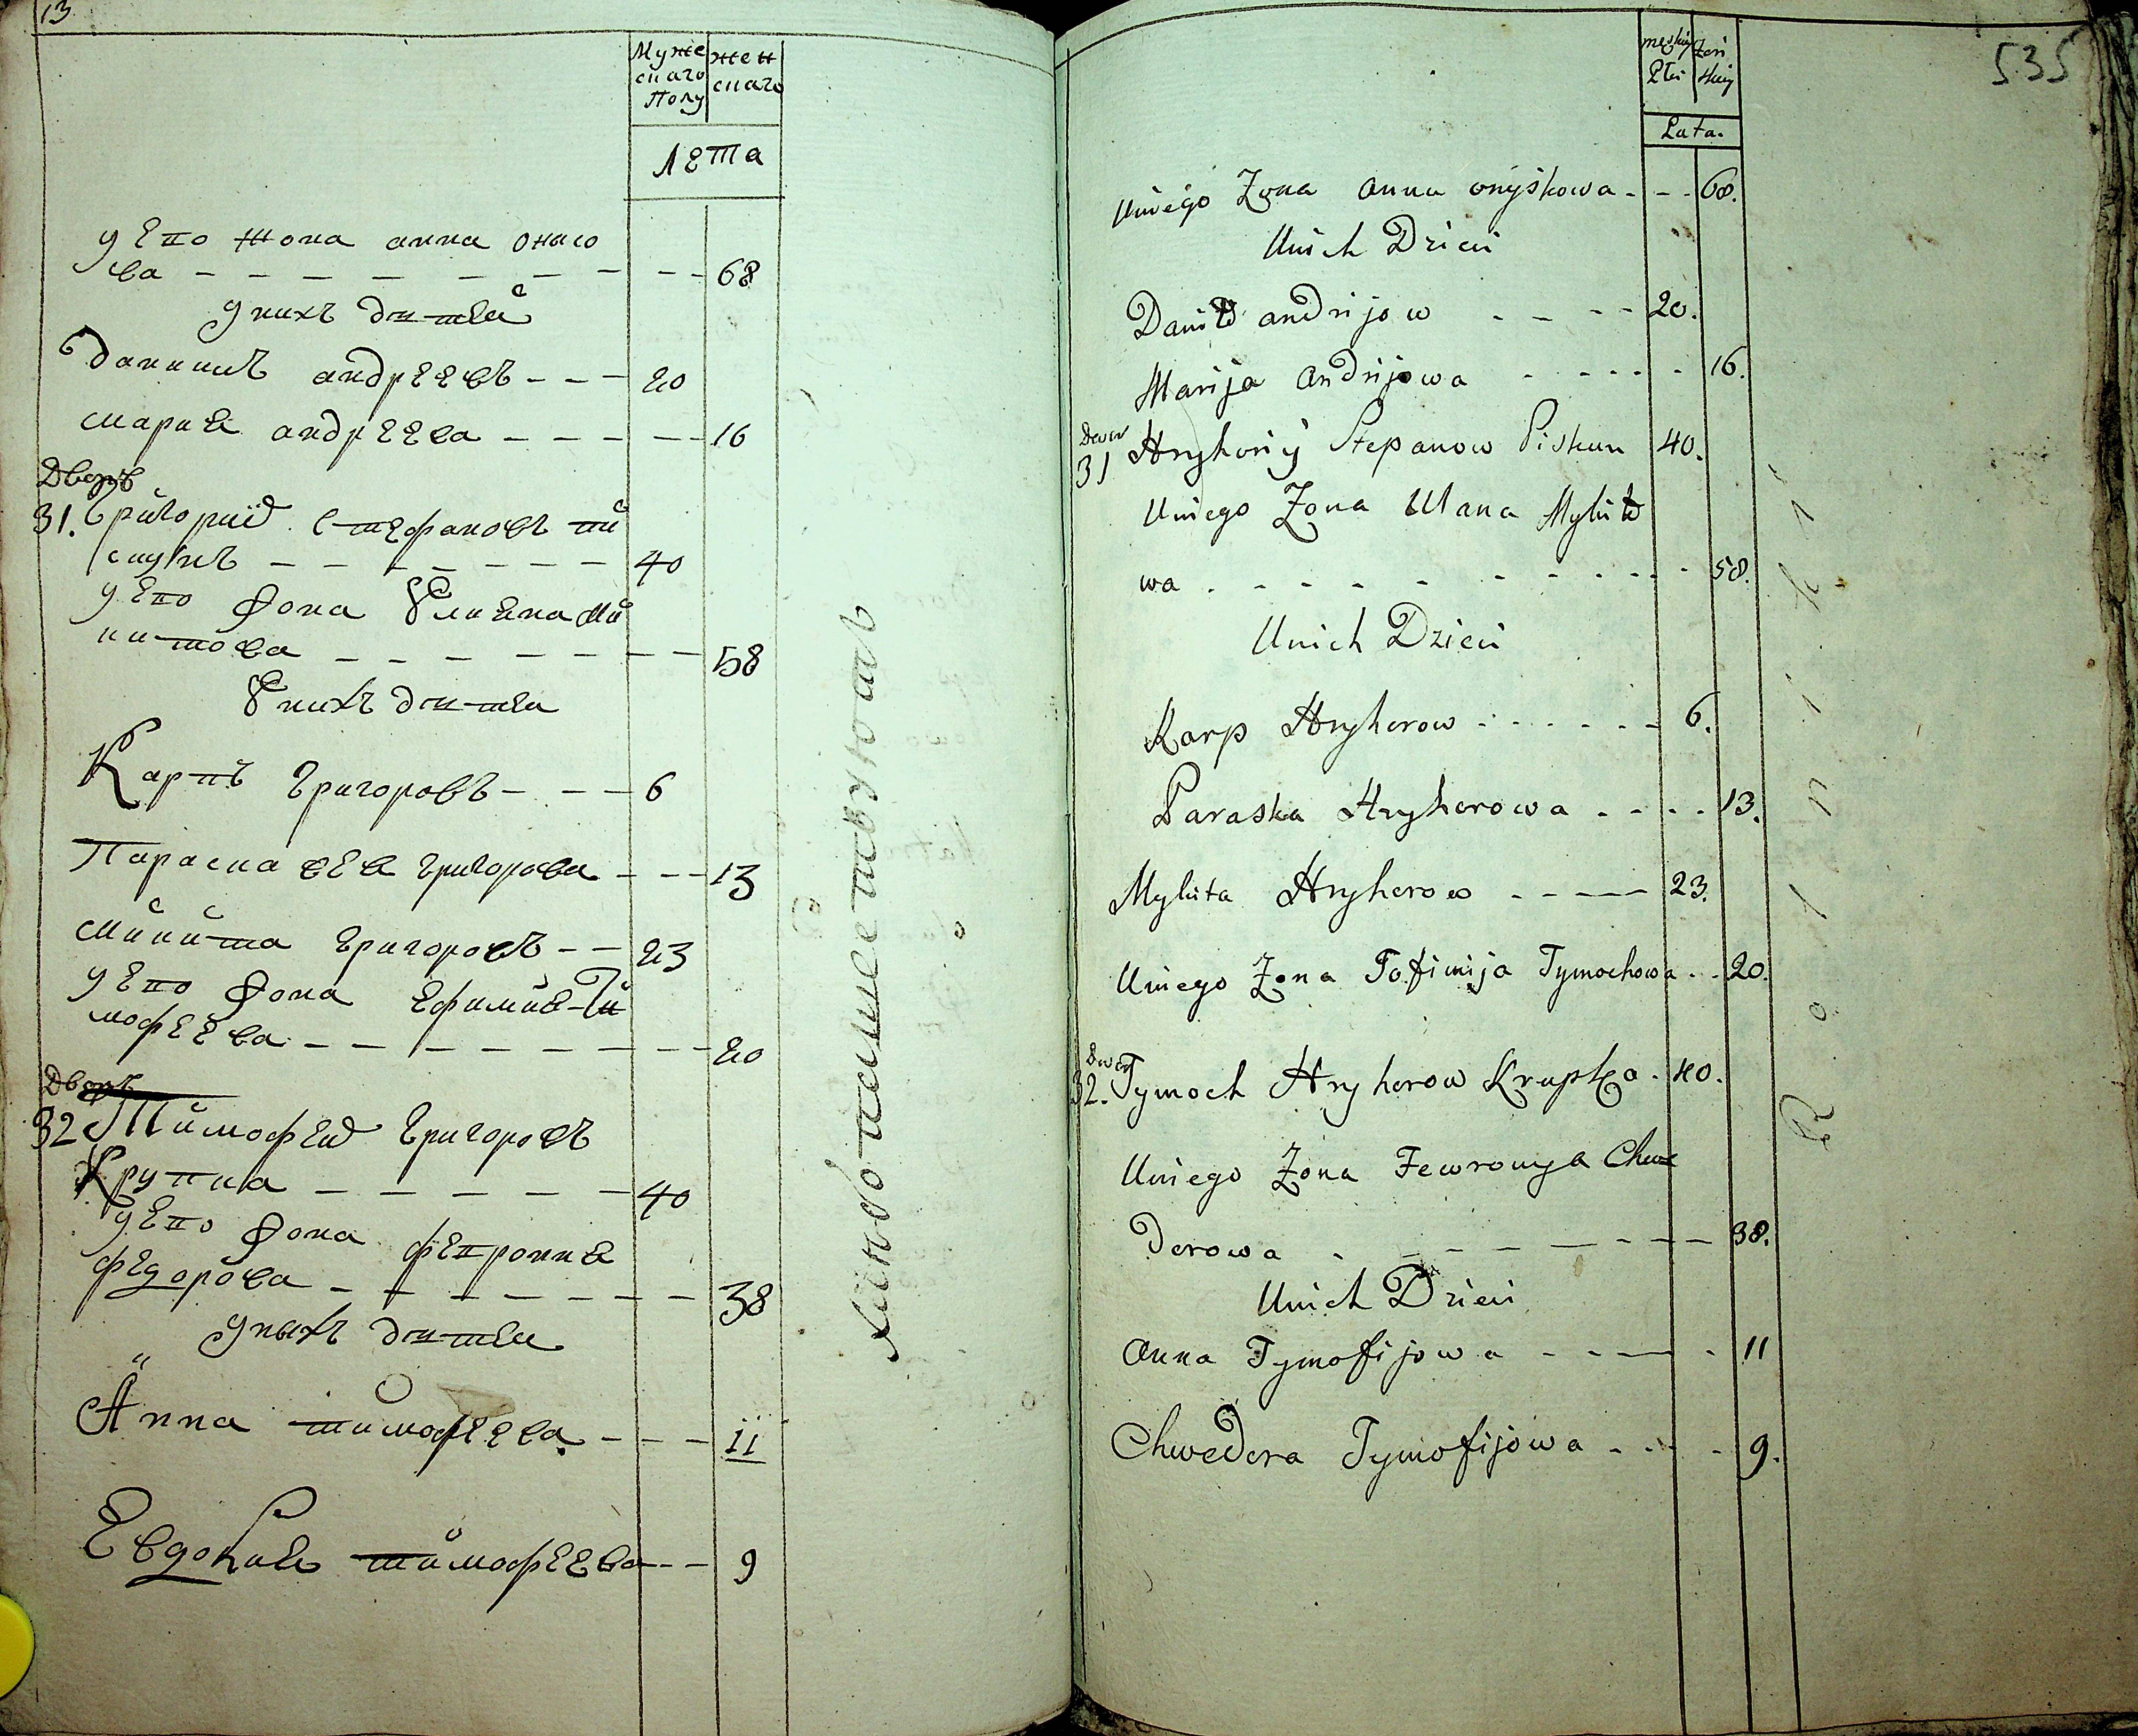 13
Муже
скаго
Полу
жен
скаго
Лета
у Его жона анна Онисо
ва - - - - - - - - - 68
у нихъ дитей
данилъ андрЕЕвъ - - - 20
мариЯ андрЕЕва - - - - - 16
Дворъ
31. Григорий Стефановъ пи
скунъ - - - - - - - 40
у Его жона Улияна Ми
китова - - - - - - - - 58
У нихъ дитеи
Карпъ григоровъ - - - 6
Параска григорова - - - 13
Микита григоровъ - - 23
у Его жона ЕфимиЯ Ти
мофЕЕва - - - - - - - - - 20
Дворъ
32 Тимофей Григоровъ
Крупка - - - - - - 40
у Его жона феврониЯ
федорова - - - - - - - - 38
у ныхъ дитеи
Анна тимофЕЕва - - - 11
ЕвдокиЯ тимофЕЕва - - - 9
męskiey
Płci
żeń
skiey
Lata.
535
Uniego Zona Anna onyśkowa - - - 68.
Unich Dzieci
Daniło andrijow - - - - 20.
Marija Andrijowa - - - - - 16.
Dwor
31 Hryhoriy Stepanow Piskun 40.
Uniego Zona Ulana Mykito
wa - - - - - - - - - 58.
Unich Dzieci
Karp Hryhorow - - - - - - 6.
Paraska Hryhorowa - - - - 13.
Mykita Hryhorow - - - - - 23.
Uniego Zona Jofimija Tymochowa - - 20.
Dwor
32. Tymoch Hryhorow Krupka - 40.
Uniego Zona Fewroniya Chwe
derowa - - - - - - - - 38.
Unich Dzieci
Anna Tymofijowa - - - - - 11
Chwedora Tymofijowa - - - - 9.